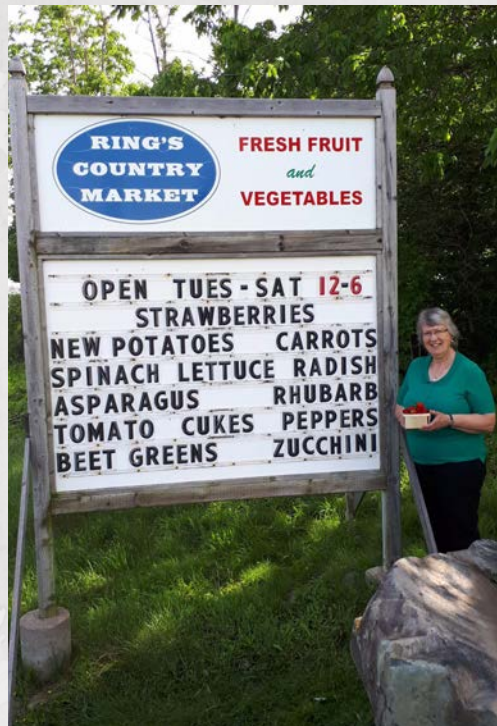 RING'S
COUNTRY
MARKET
FRESH FRUIT
and
VEGETABLES
OPEN TUES - SAT 12-6
STRAWBERRIES
NEW POTATOES CARROTS
SPINACH LETTUCE RADISH
ASPARAGUS RHUBARB
TOMATO CUKES PEPPERS
BEET GREENS ZUCCHINI